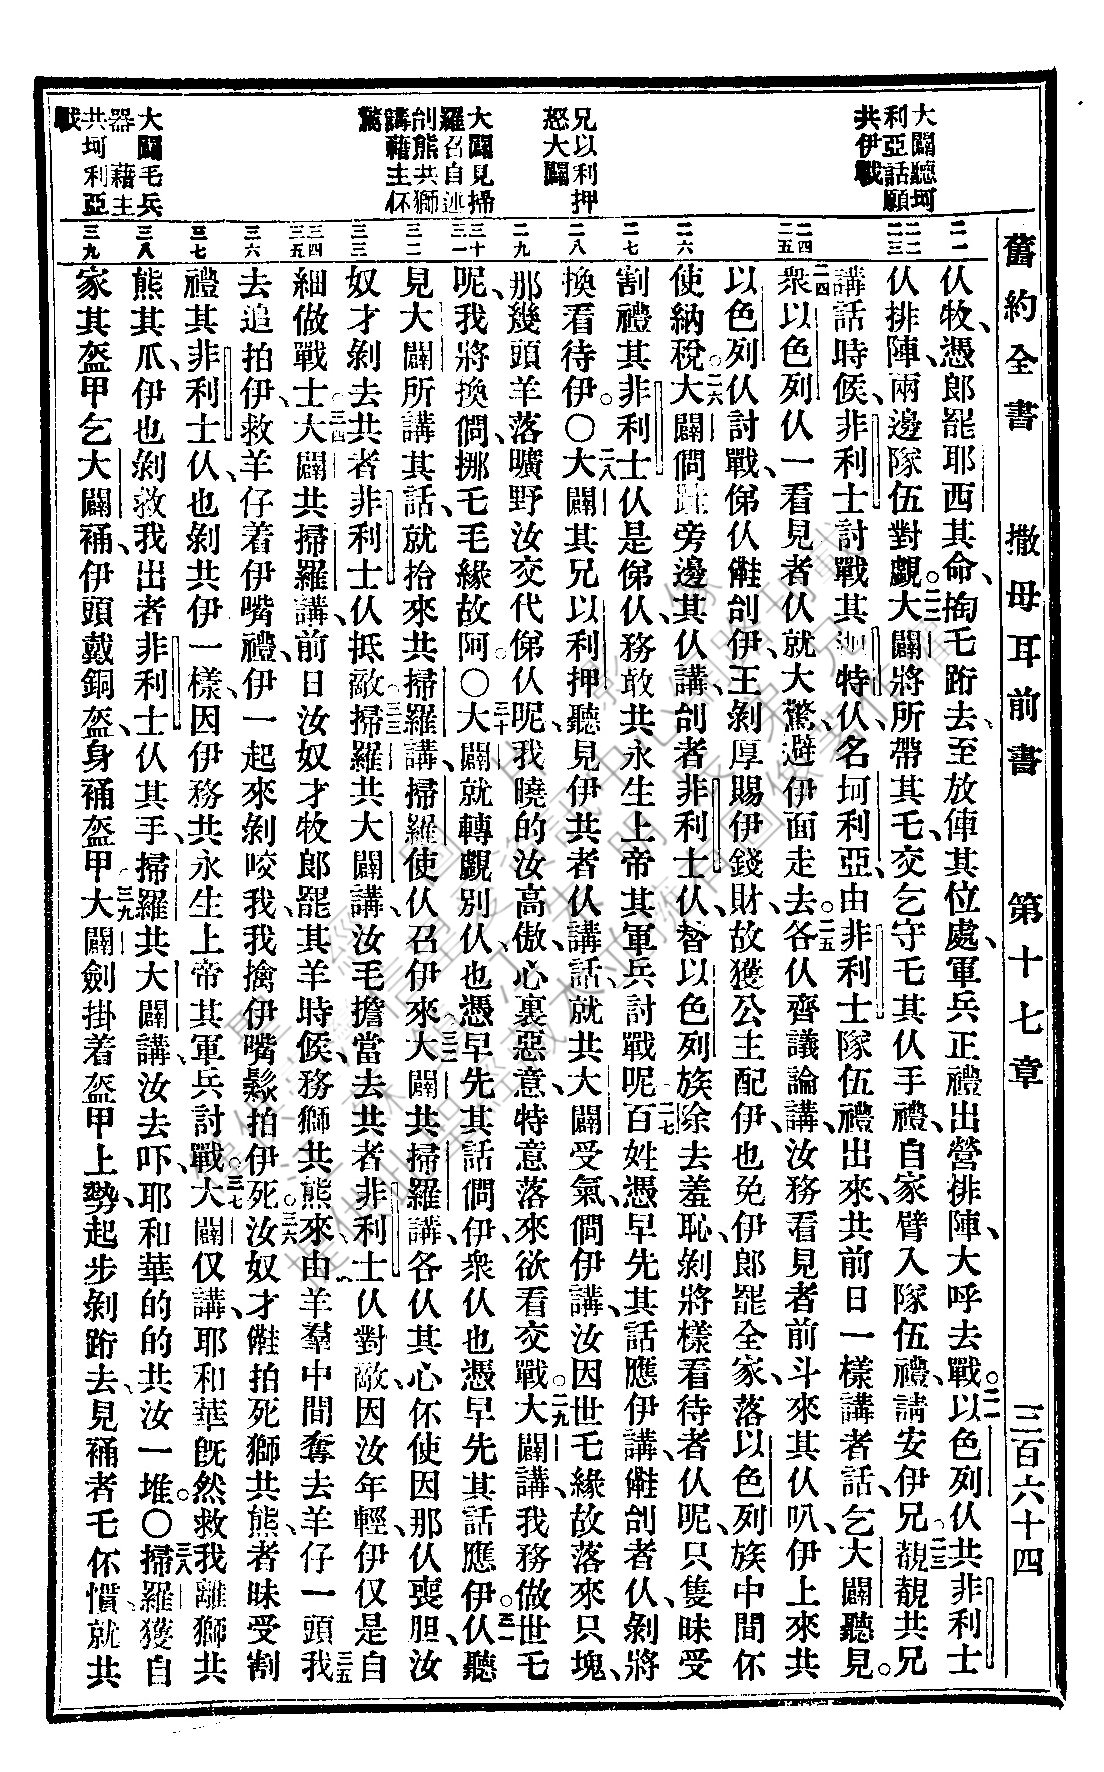 舊約全書 撒母耳前書 第十七章 三百六十四
大闢聽坷
利亞話願
共伊戰
兄以利押
怒大闢
大闢見掃
羅召自述
刣熊共獅
講藉主伓
驚
大闢毛兵
器藉主
共坷利亞
戰
二一 二二 二三 二四 二五 二六 二七 二八 二九 三十 三一 三二 三三 三四 三五 三六 三七 三八 三九
仅牧、憑郎罷耶西其命、掏乇跡去、至放俥其位處、軍兵正禮出營排陣、大呼去戰。二一以色列仅共非利士
仅排陣、兩邊隊伍對覷。二二大闢將所帶其乇、交乞守乇其仅手禮、自家臂入隊伍禮、請安伊兄。二三覩覩共兄
講話時候、非利士討戰其迦特仅、名坷利亞、由非利士隊伍禮出來、共前日一樣講者話、乞大闢聽見。
二四衆以色列仅、一看見者仅、就大驚、避伊面走去。二五各仅齊議論講、汝務看見者前斗來其仅叭、伊上來共
以色列仅討戰、俤仅㑚刣伊、王剝厚賜伊錢財、故獲公主配伊、也免伊郎罷全家、落以色列族中間伓
使納稅。二六大闢問跬旁邊其仅講、刣者非利士仅、替以色列族除去羞恥、剝將樣看待者仅呢、只隻昧受
割禮其非利士仅是俤仅、務敢共永生上帝其軍兵討戰呢。二七百姓憑早先其話應伊講、㑚刣者仅、剝將
換看待伊。〇二八大闢其兄以利押、聽見伊共者仅講話、就共大闢受氣、問伊講、汝因世乇緣故落來只塊、
那幾頭羊、落曠野汝交代俤仅呢、我曉的汝高傲、心裏惡意、特意落來、欲看交戰。二九大闢講、我務做世乇
呢、我將換問、挪乇毛緣故阿。〇三十大闢就轉覷別仅、也憑早先其話問伊、衆仅也憑早先其話應伊。三一仅聽
見大闢所講其話、就拾來共掃羅講、掃羅使仅召伊來。三二大闢共掃羅講、各仅其心伓使因那仅喪胆、汝
奴才剝去共者非利士仅抵敵。三三掃羅共大闢講、汝毛擔當去共者非利士仅對敵、因汝年輕、伊仅是自
細做戰士。三四大闢共掃羅講、前日汝奴才牧郎罷其羊時候、務獅共熊來、由羊羣中間奪去羊仔一頭。三五我
去追拍伊、救羊仔着伊嘴禮、伊一起來剝咬我、我擒伊嘴鬏、拍伊死。三六汝奴才㑚拍死獅共熊、者昧受割
禮其非利士仅、也剝共伊一樣、因伊務共永生上帝其軍兵討戰。三七大闢仅講、耶和華旣然救我離獅共
熊其爪、伊也剝救我出者非利士仅其手、掃羅共大闢講、汝去吓、耶和華的的共汝一堆。〇三八掃羅獲自
家其盔甲、乞大闢䘄、伊頭戴銅盔、身䘄盔甲。三九大闢劍掛着盔甲上、勢起步剝跡去、見䘄者乇伓慣、就共